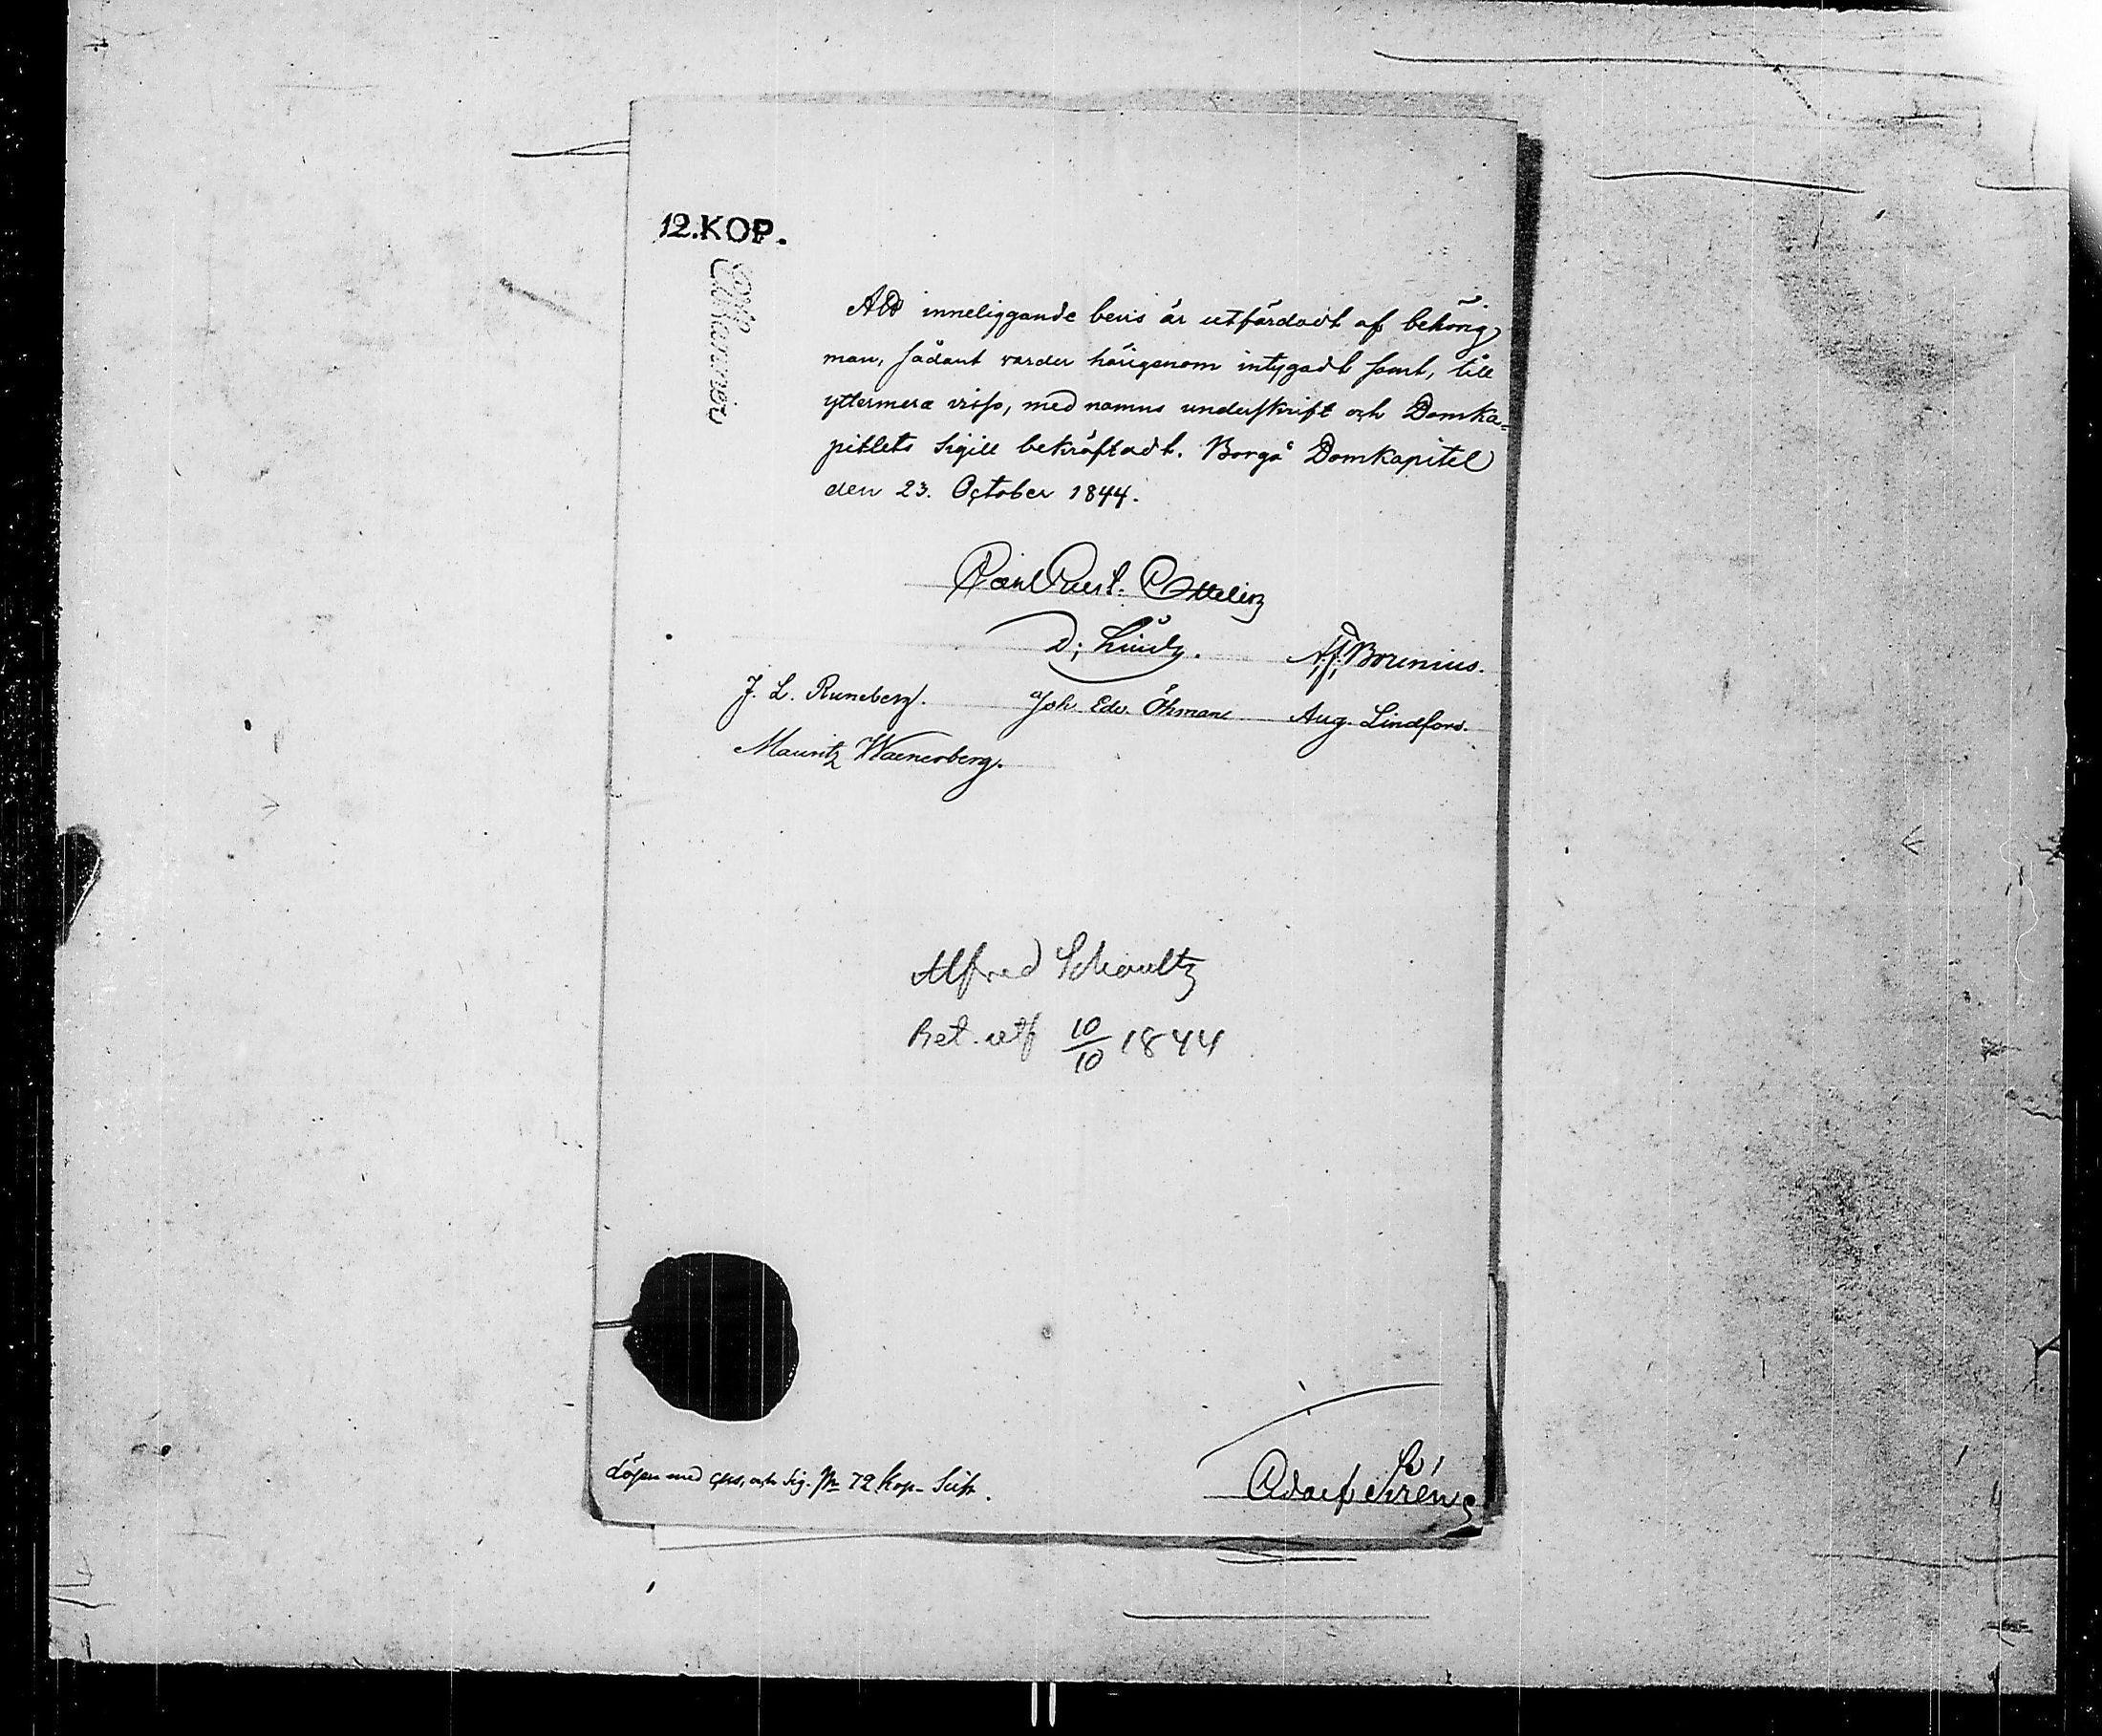 12.KOP.
Att inneliggande bevis är utfärdadt af behörig
man, sådant varder härigenom intygadt samt, till
yttermera visso, med namns underskrift och Domka=
pitlets Sigill bekräftadt. Borgå Domkapitel
den 23. October 1844.
Carl Gust. Ottelin
A. J. Borenius.
J. L. Runeberg. Joh. Edv. Öhmann Aug. Lindfors.
Mauritz Waenerberg.
Alfred Schoultz
Bet. utf 10/10 1844
Lösen med och Sig. 72 kop. Silfr.
Adolf Sirén